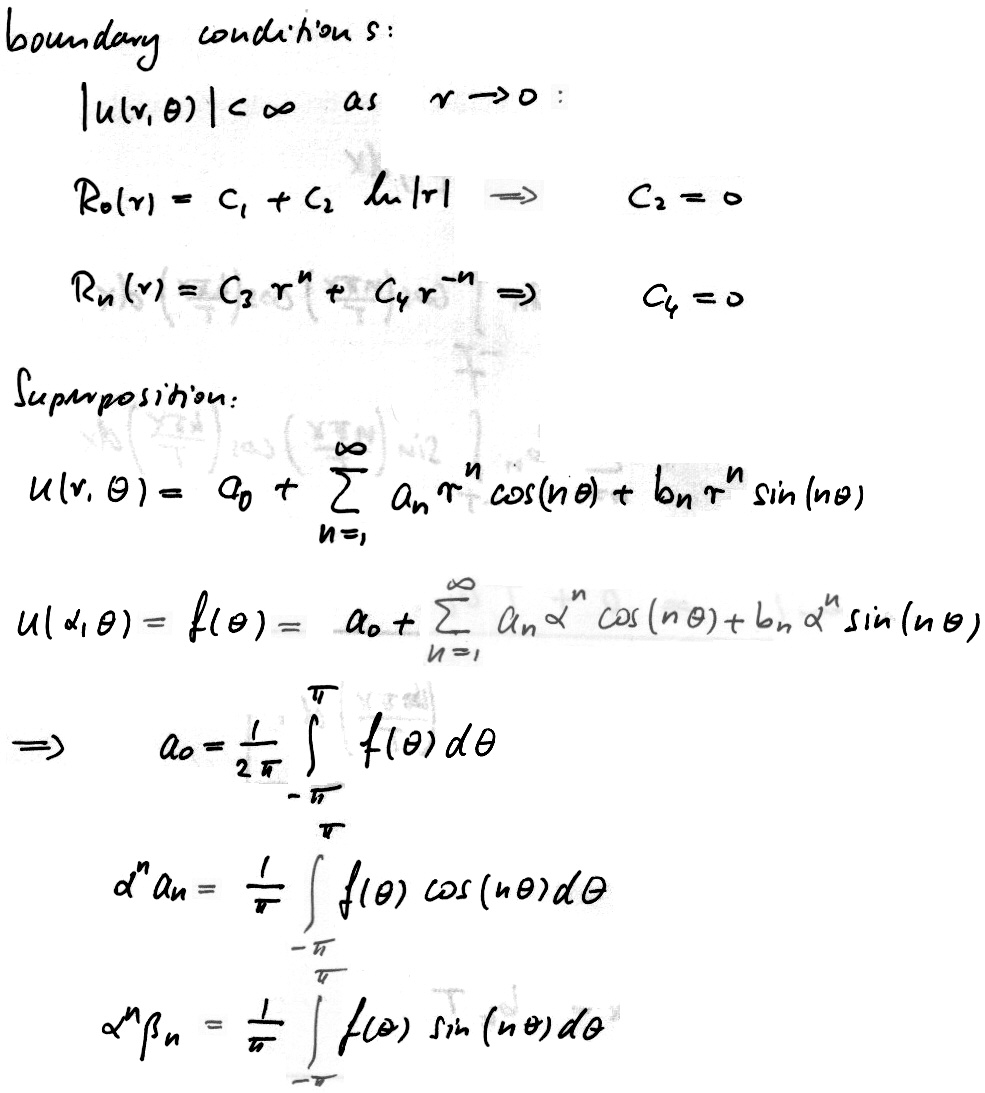 boundary conditions:
|u(r, θ)| < ∞ as r → 0 :
R₀(r) = C₁ + C₂ ln|r| ⇒ C₂ = 0
Rₙ(r) = C₃ rⁿ + C₄ r⁻ⁿ ⇒ C₄ = 0
Superposition:
u(r, θ) = a₀ + ∑_{n=1}^{∞} aₙ rⁿ cos(nθ) + bₙ rⁿ sin(nθ)
u(α, θ) = f(θ) = a₀ + ∑_{n=1}^{∞} aₙ αⁿ cos(nθ) + bₙ αⁿ sin(nθ)
⇒ a₀ = 1/(2π) ∫_{-π}^{π} f(θ) dθ
αⁿ aₙ = 1/π ∫_{-π}^{π} f(θ) cos(nθ) dθ
αⁿ βₙ = 1/π ∫_{-π}^{π} f(θ) sin(nθ) dθ